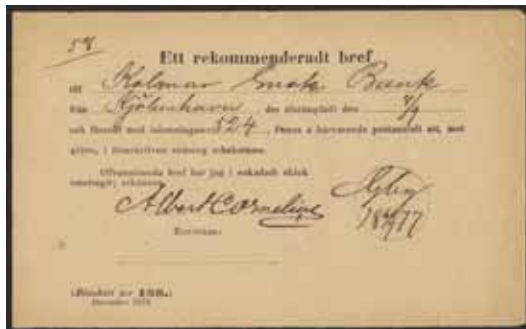 58
Ett rekommenderadt bref
till Kalmar Enskr. Bank
från Kjöbenhavn, der afstämpladt den 4/9
och försedt med inlemningsn:r 524, finnes å härvarande postanstalt att, mot
qvitto, i föreskrifven ordning utbekomma.
Ofvannämnda bref har jag i oskadadt skick
emottagit; erkännes
Albert Cornelius
Nyby
18 4/9 77
(Blankett n:r 188.)
December 1876